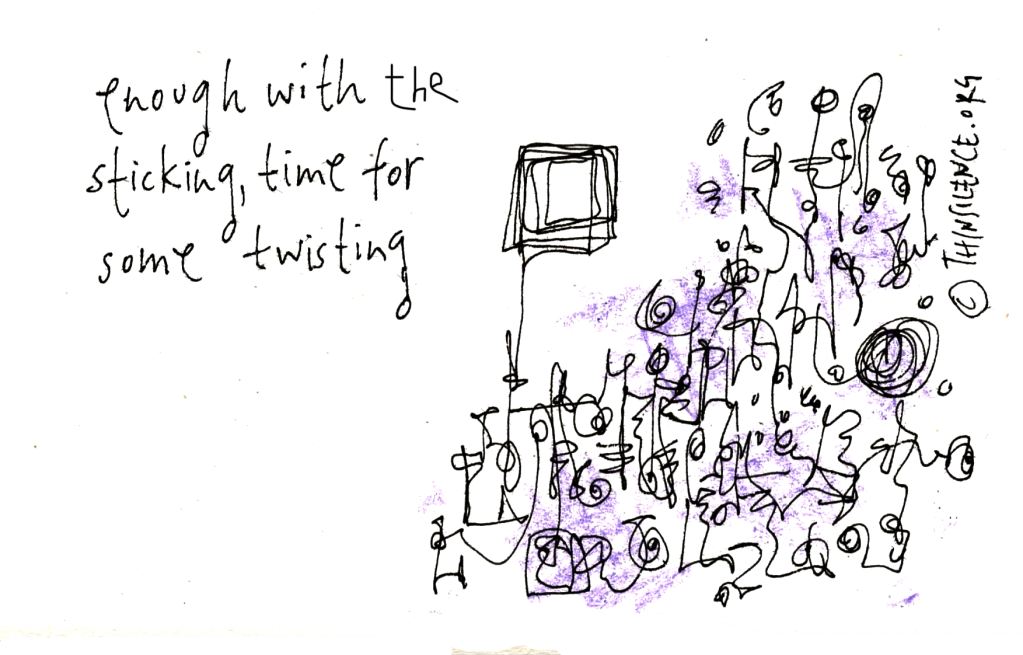 enough with the
sticking, time for
some twisting
© THINSILENCE.ORG